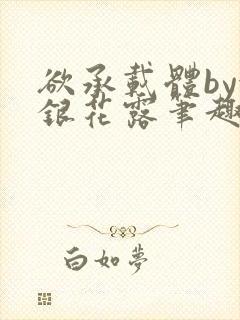 欲承載體by
銀花露筆趣
白如夢